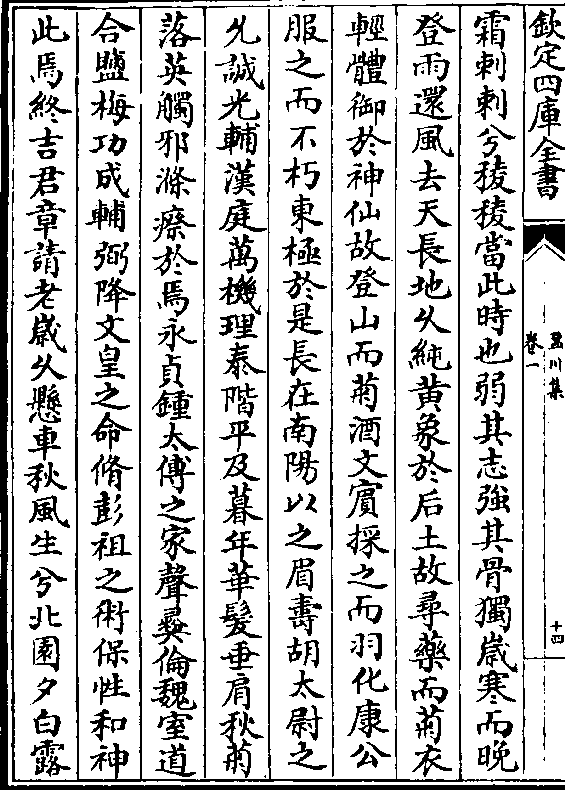 欽定四庫全書
盈川集
卷一
十四
霜刺刺兮稜稜當此時也弱其志強其骨獨嵗寒而晚
登雨還風去天長地乆純黄象於后土故尋藥而菊衣
輕體御於神仙故登山而菊酒文賓採之而羽化康公
服之而不朽東極於是長在南陽以之眉壽胡太尉之
允誠光輔漢庭萬機理泰階平及暮年華髮垂肩秋菊
落英觸邪滌瘵於焉永貞鍾太傅之家聲彛倫魏室道
合鹽梅功成輔弼降文皇之命脩彭祖之術保性和神
此焉終吉君章請老嵗乆懸車秋風生兮北園夕白露